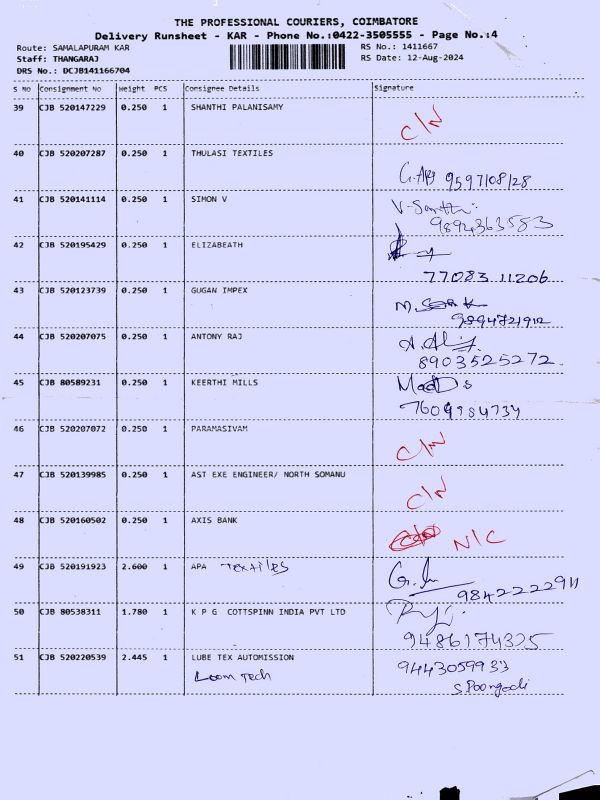 THE PROFESSIONAL COURIERS, COIMBATORE
Delivery Runsheet - KAR - Phone No.:0422-3505555 - Page No.:4
Route: SAMALAPURAM KAR RS No.: 1411667
Staff: THANGARAJ RS Date: 12-Aug-2024
DRS No.: DCJB141166704
S No Consignment No Weight PCS Consignee Details Signature
39 CJB 520147229 0.250 1 SHANTHI PALANISAMY
C/N
40 CJB 520207287 0.250 1 THULASI TEXTILES
9597108128
41 CJB 520141114 0.250 1 SIMON V
9894363583
42 CJB 520195429 0.250 1 ELIZABEATH
77083 11206
43 CJB 520123739 0.250 1 GUGAN IMPEX
9894721912
44 CJB 520207075 0.250 1 ANTONY RAJ
8903525272
45 CJB 80589231 0.250 1 KEERTHI MILLS
7609984734
46 CJB 520207072 0.250 1 PARAMASIVAM
C/N
47 CJB 520139985 0.250 1 AST EXE ENGINEER/ NORTH SOMANU
C/N
48 CJB 520160502 0.250 1 AXIS BANK
N/C
49 CJB 520191923 2.600 1 APA Textiles
9842222911
50 CJB 80538311 1.780 1 K P G COTTSPINN INDIA PVT LTD
9486174325
51 CJB 520220539 2.445 1 LUBE TEX AUTOMISSION 9443059933
Loom Tech S.Poongodi